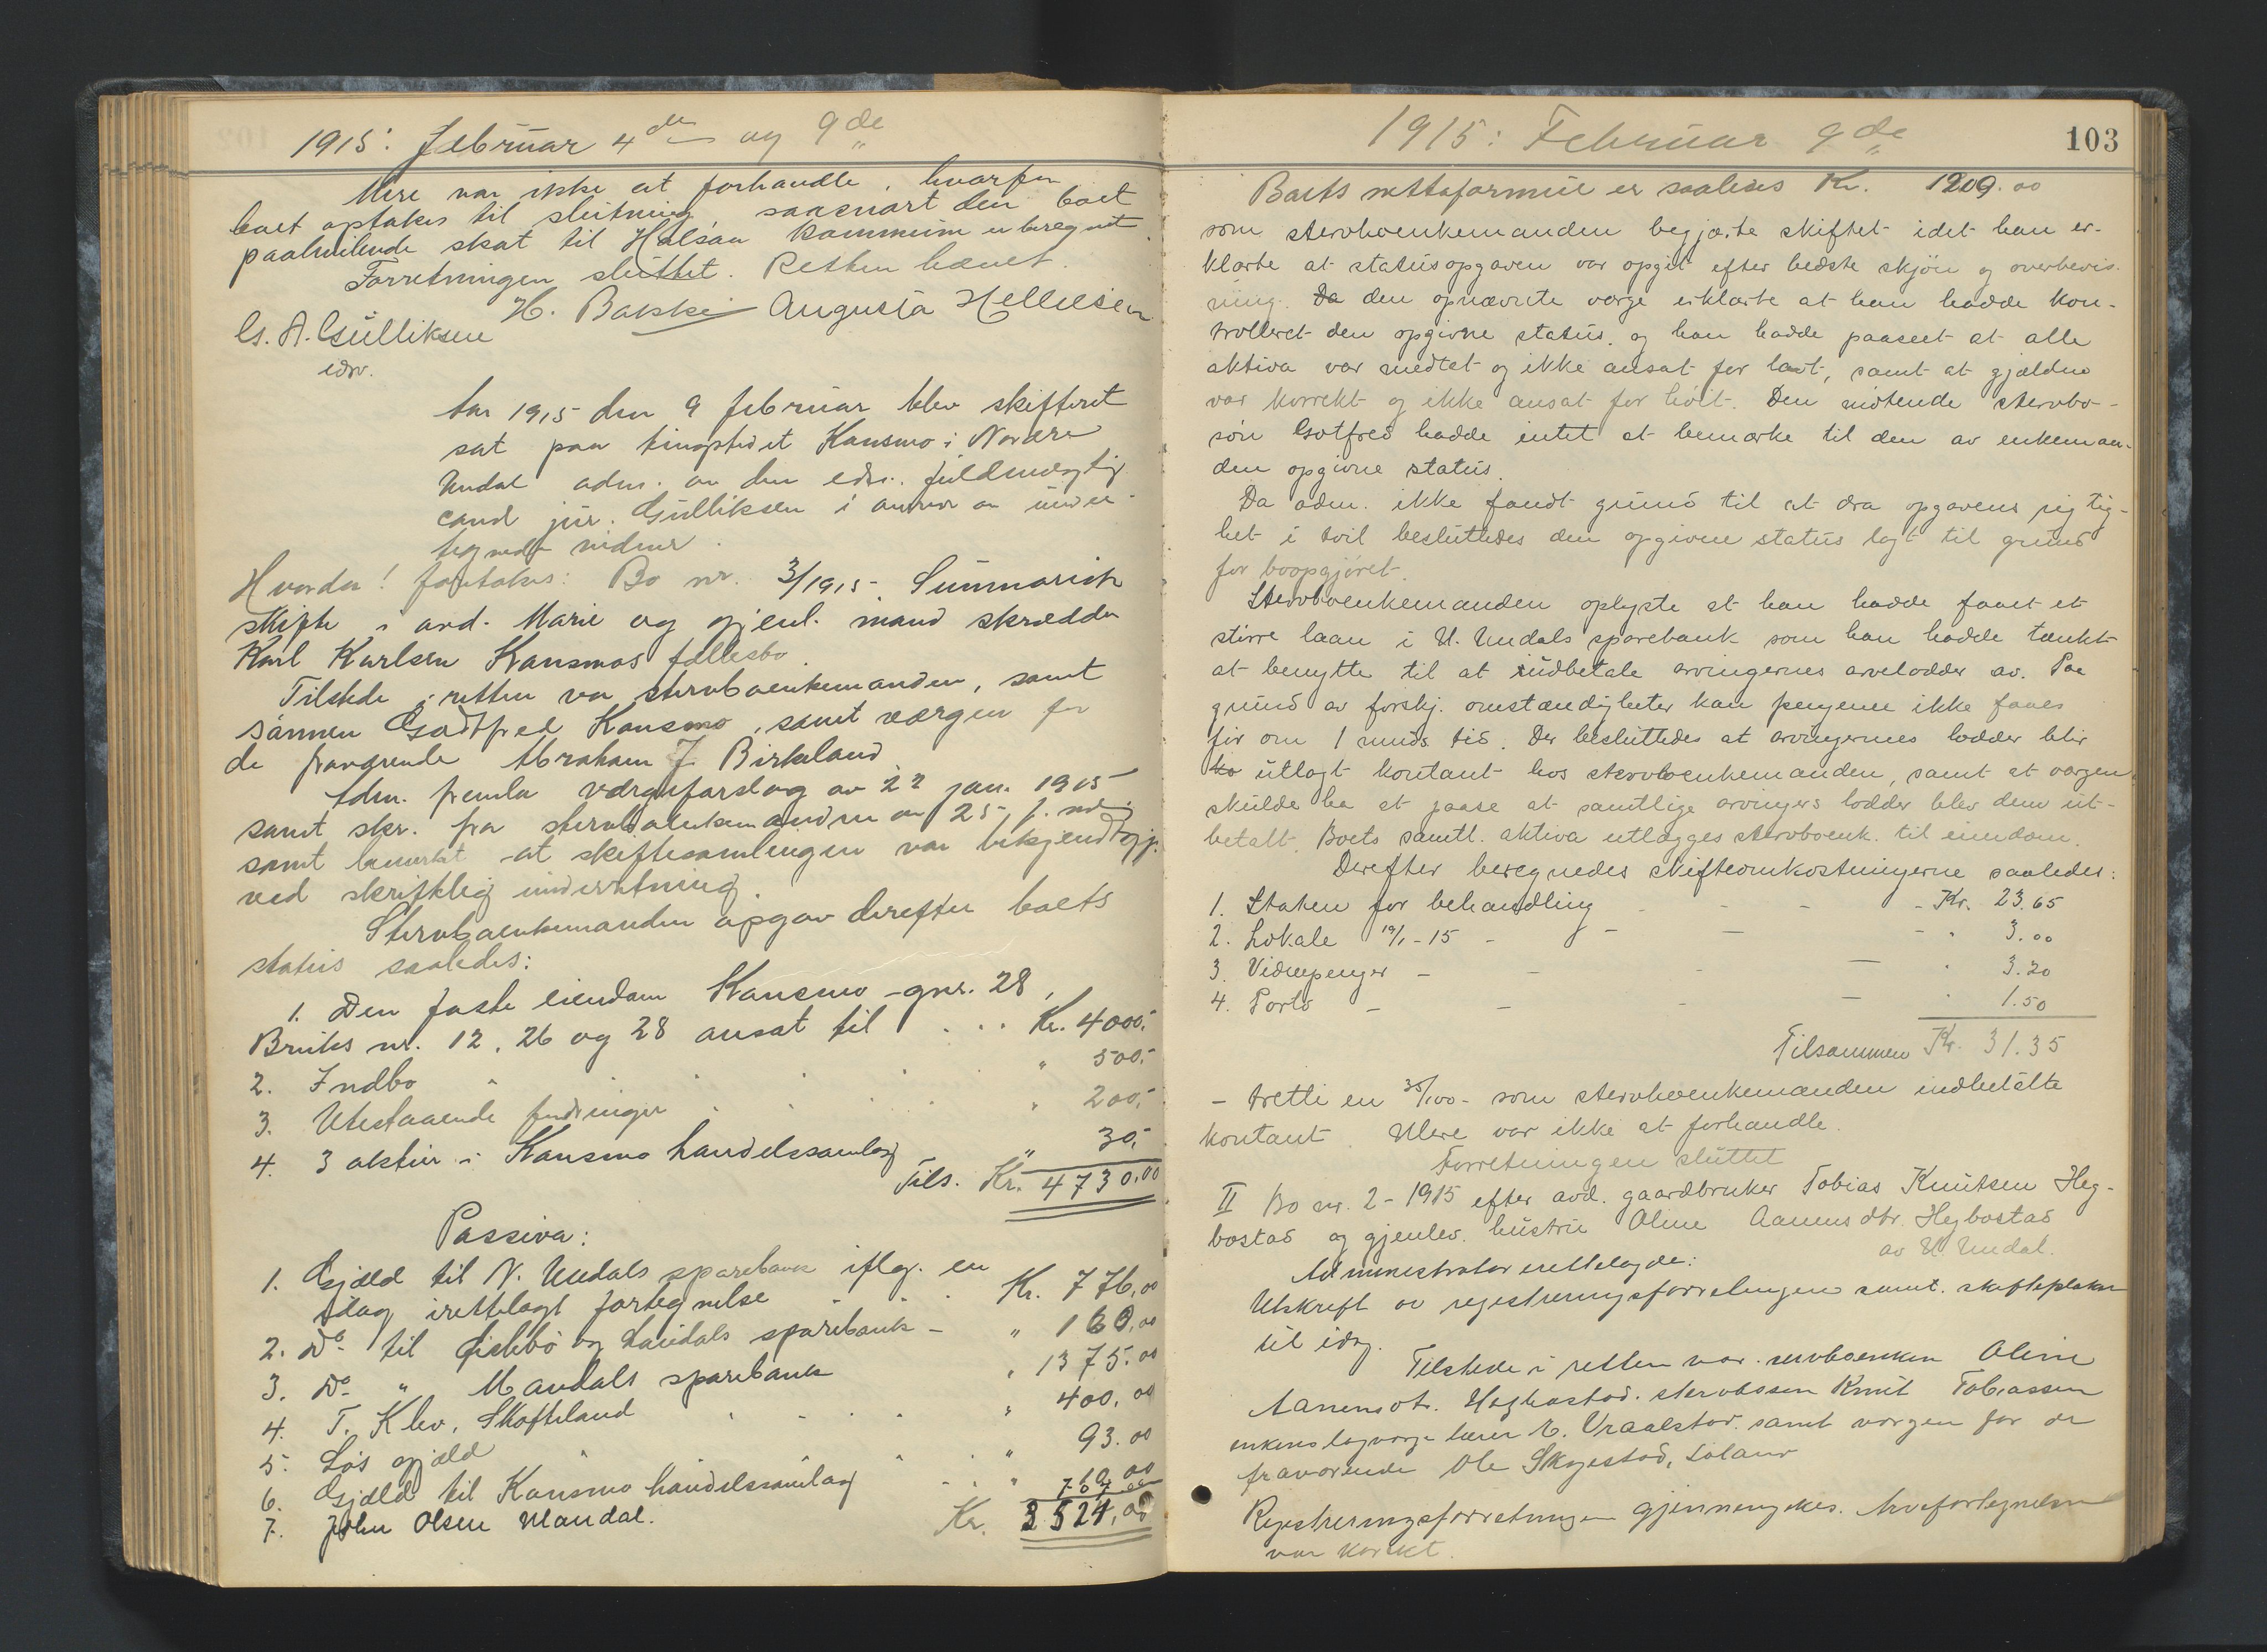 1915: Februar 4de og 9de
Mere var ikke at forhandle, hvorfor
boet optakes til slutning, saasnart den boet
paahvilende skat til Halsaa kommune er beregnet.
Forretningen sluttet. Retten hævet
H. Bakke Augusta Hellesen
G. A. Gulliksen
edsv.
Aar 1915 den 9 februar blev skifteret
sat paa tingstedet Konsmo i Nordre
Undal adm. av den edsv. fuldmægtig
cand jur. Gulliksen i overvær av under-
tegnede vidner.
Hvorda! foretokes: Bo nr. 3/1915. Summarisk
skifte i avd. Marie og gjenl. mand skrædder
Karl Karlsen Konsmos fællesbo.
Tilstede i retten var stervboenkemanden, samt
sønnen Godtfred Konsmo, samt værgen for
de fraværende Abraham J. Birkeland
Adm. fremla værgeforslag av 22 jan. 1915
samt skr. fra stervboenkemanden av 25 f. md.
samt bemerket at skiftesamlingen var bekjendtgj.
ved skriftlig underretning.
Stervboenkemanden opgav derefter boets
status saaledes:
1. Den faste eiendom Konsmo - gnr. 28,
Bruks nr. 12, 26 og 28 ansat til . . . Kr. 4000,-
2. Indbo " 500,-
3. Utestaaende fordringer " 200,-
4. 3 aktier i Konsmo handelssamlag " 30,-
Tils. Kr. 4730.00
Passiva:
1. Gjæld til N. Undals sparebank iflg. en
idag irettelagt fortegnelse . . . Kr. 776,00
2. Do til og Laudals sparebank - " 160,00
3. Do " Mandals sparebank " 1375.00
4. T. Klev, Skofteland " 400,00
5. Løs gjæld " 93.00
6. Gjæld til Konsmo handelssamlag
7. John Olsen Mandal. Kr. 3521,00
1915: Februar 9de
103
Boets nettoformue er saaledes Kr. 1209.00
som stervboenkemanden begjærte skiftet idet han er-
klærte at statusopgaven var opgit efter bedste skjøn og overbevis-
ning. Da den opnævnte værge erklærte at han hadde kon-
trolleret den opgivne status, og han hadde paaseet at alle
aktiva var medtat og ikke ansat for lavt, samt at gjælden
var korrekt og ikke ansat for høit. Den møtende stervbo-
søn Gotfred hadde intet at bemerke til den av enkeman-
den opgivne status.
Da adm. ikke fandt grund til at dra opgavens rigtig-
het i tvil besluttedes den opgivne status lagt til grund
for boopgjøret.
Stervboenkemanden oplyste at han hadde faaet et
større laan i N. Undals sparebank som han hadde tænkt
at benytte til at indbetale arvingernes arvelodder av. Paa
grund av forskj. omstændigheter kan pengene ikke faaes
før om 1 mnds tid. Der besluttedes at arvingernes lodder blir
utlagt kontant hos stervboenkemanden, samt at værgen
skulde ha at paase at samtlige arvingers lodder blev dem ut-
betalt. Boets samtl. aktiva utlægges stervboenk. til eiendom.
Derefter beregnedes skifteomkostningerne saaledes:
1. Staten for behandling - - - - Kr. 23.65
2. Lokale 19/1-15 - - - - " 3.00
3. Vidnepenger - - - - " 3.20
4. Porto - - - - " 1.50
Tilsammen Kr. 31.35
- tretti en 35/100 - som stervboenkemanden indbetalte
kontant. Mere var ikke at forhandle.
Forretningen sluttet
II Bo nr. 2 - 1915 efter avd. gaardbruker Tobias Knutsen Heg-
bostad og gjenlev. hustru Oline Aanensdtr. Hegbostad
av N. Undal.
Administrator irettelagde:
Utskrift av registreringsforretningen samt skifteplakat
til idag.
Tilstede i retten var stervboenken Oline
Aanensdtr. Hegbostad, stervbosøn Knut Tobiassen
enkens lagværge lærer E. Vraalstad, samt værgen for de
fraværende Ole Skjestad, Loland
Registreringsforretningen gjennemgikkes. Arvefortegnelsen
var korrekt.